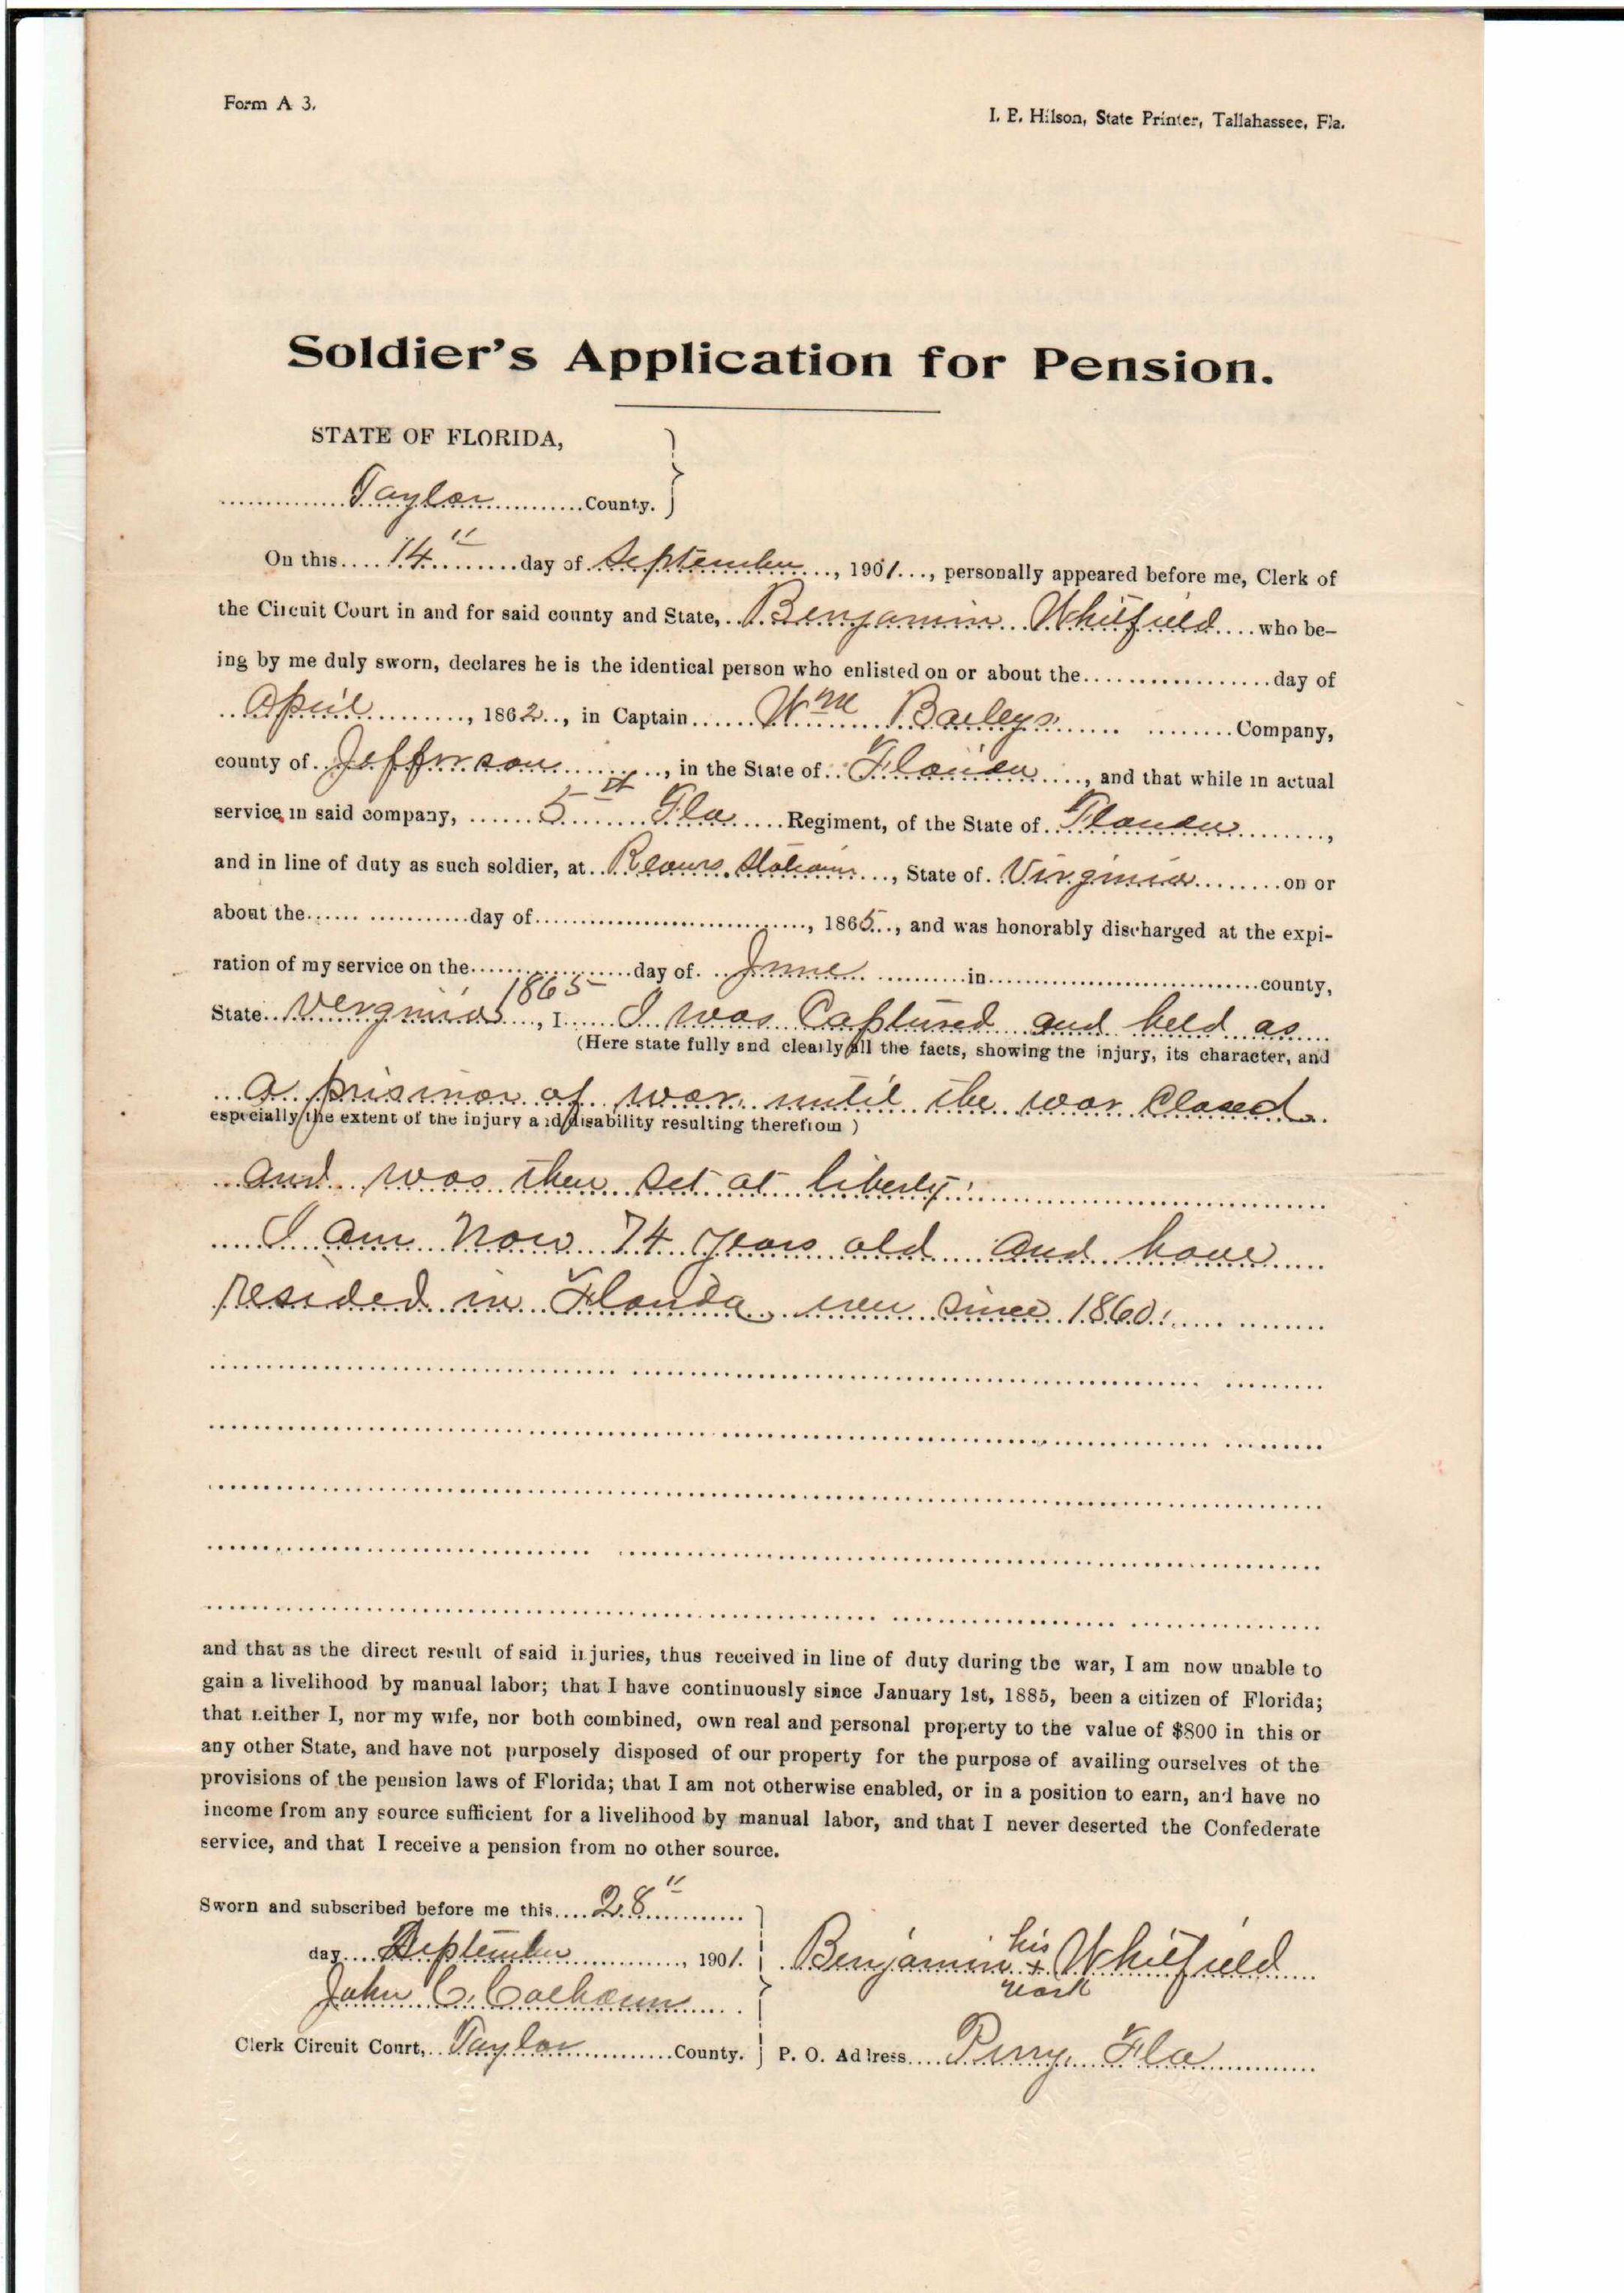 Form A 3.
I. E. Hilson, State Printer, Tallahassee, Fla.
Soldier's Application for Pension.
STATE OF FLORIDA,
Taylor County.
On this 14" day of September, 1901, personally appeared before me, Clerk of
the Circuit Court in and for said county and State, Benjamin Whitfield who be-
ing by me duly sworn, declares he is the identical person who enlisted on or about the day of
April, 1862, in Captain Wm Baileys Company,
county of Jefferson, in the State of Florida, and that while in actual
service in said company, 5 Fla Regiment, of the State of Florida,
and in line of duty as such soldier, at Station, State of Virginia on or
about the day of, 1865, and was honorably discharged at the expi-
ration of my service on the day of June in county,
1865
State Verginia, I I was Captured and held as
(Here state fully and clearly all the facts, showing the injury, its character, and
a prisinor of war until the war Closed
especially the extent of the injury and disability resulting therefrom)
and was then set at liberty.
I am now 74 years old and have
resided in Florida ever since 1860.
and that as the direct result of said injuries, thus received in line of duty during the war, I am now unable to
gain a livelihood by manual labor; that I have continuously since January 1st, 1885, been a citizen of Florida;
that neither I, nor my wife, nor both combined, own real and personal property to the value of $800 in this or
any other State, and have not purposely disposed of our property for the purpose of availing ourselves of the
provisions of the pension laws of Florida; that I am not otherwise enabled, or in a position to earn, and have no
income from any source sufficient for a livelihood by manual labor, and that I never deserted the Confederate
service, and that I receive a pension from no other source.
Sworn and subscribed before me this 28"
day September, 1901.
John C. Calhoun
Clerk Circuit Court, Taylor County.
his
Benjamin + Whitfield
mark
P. O. Address Perry Fla